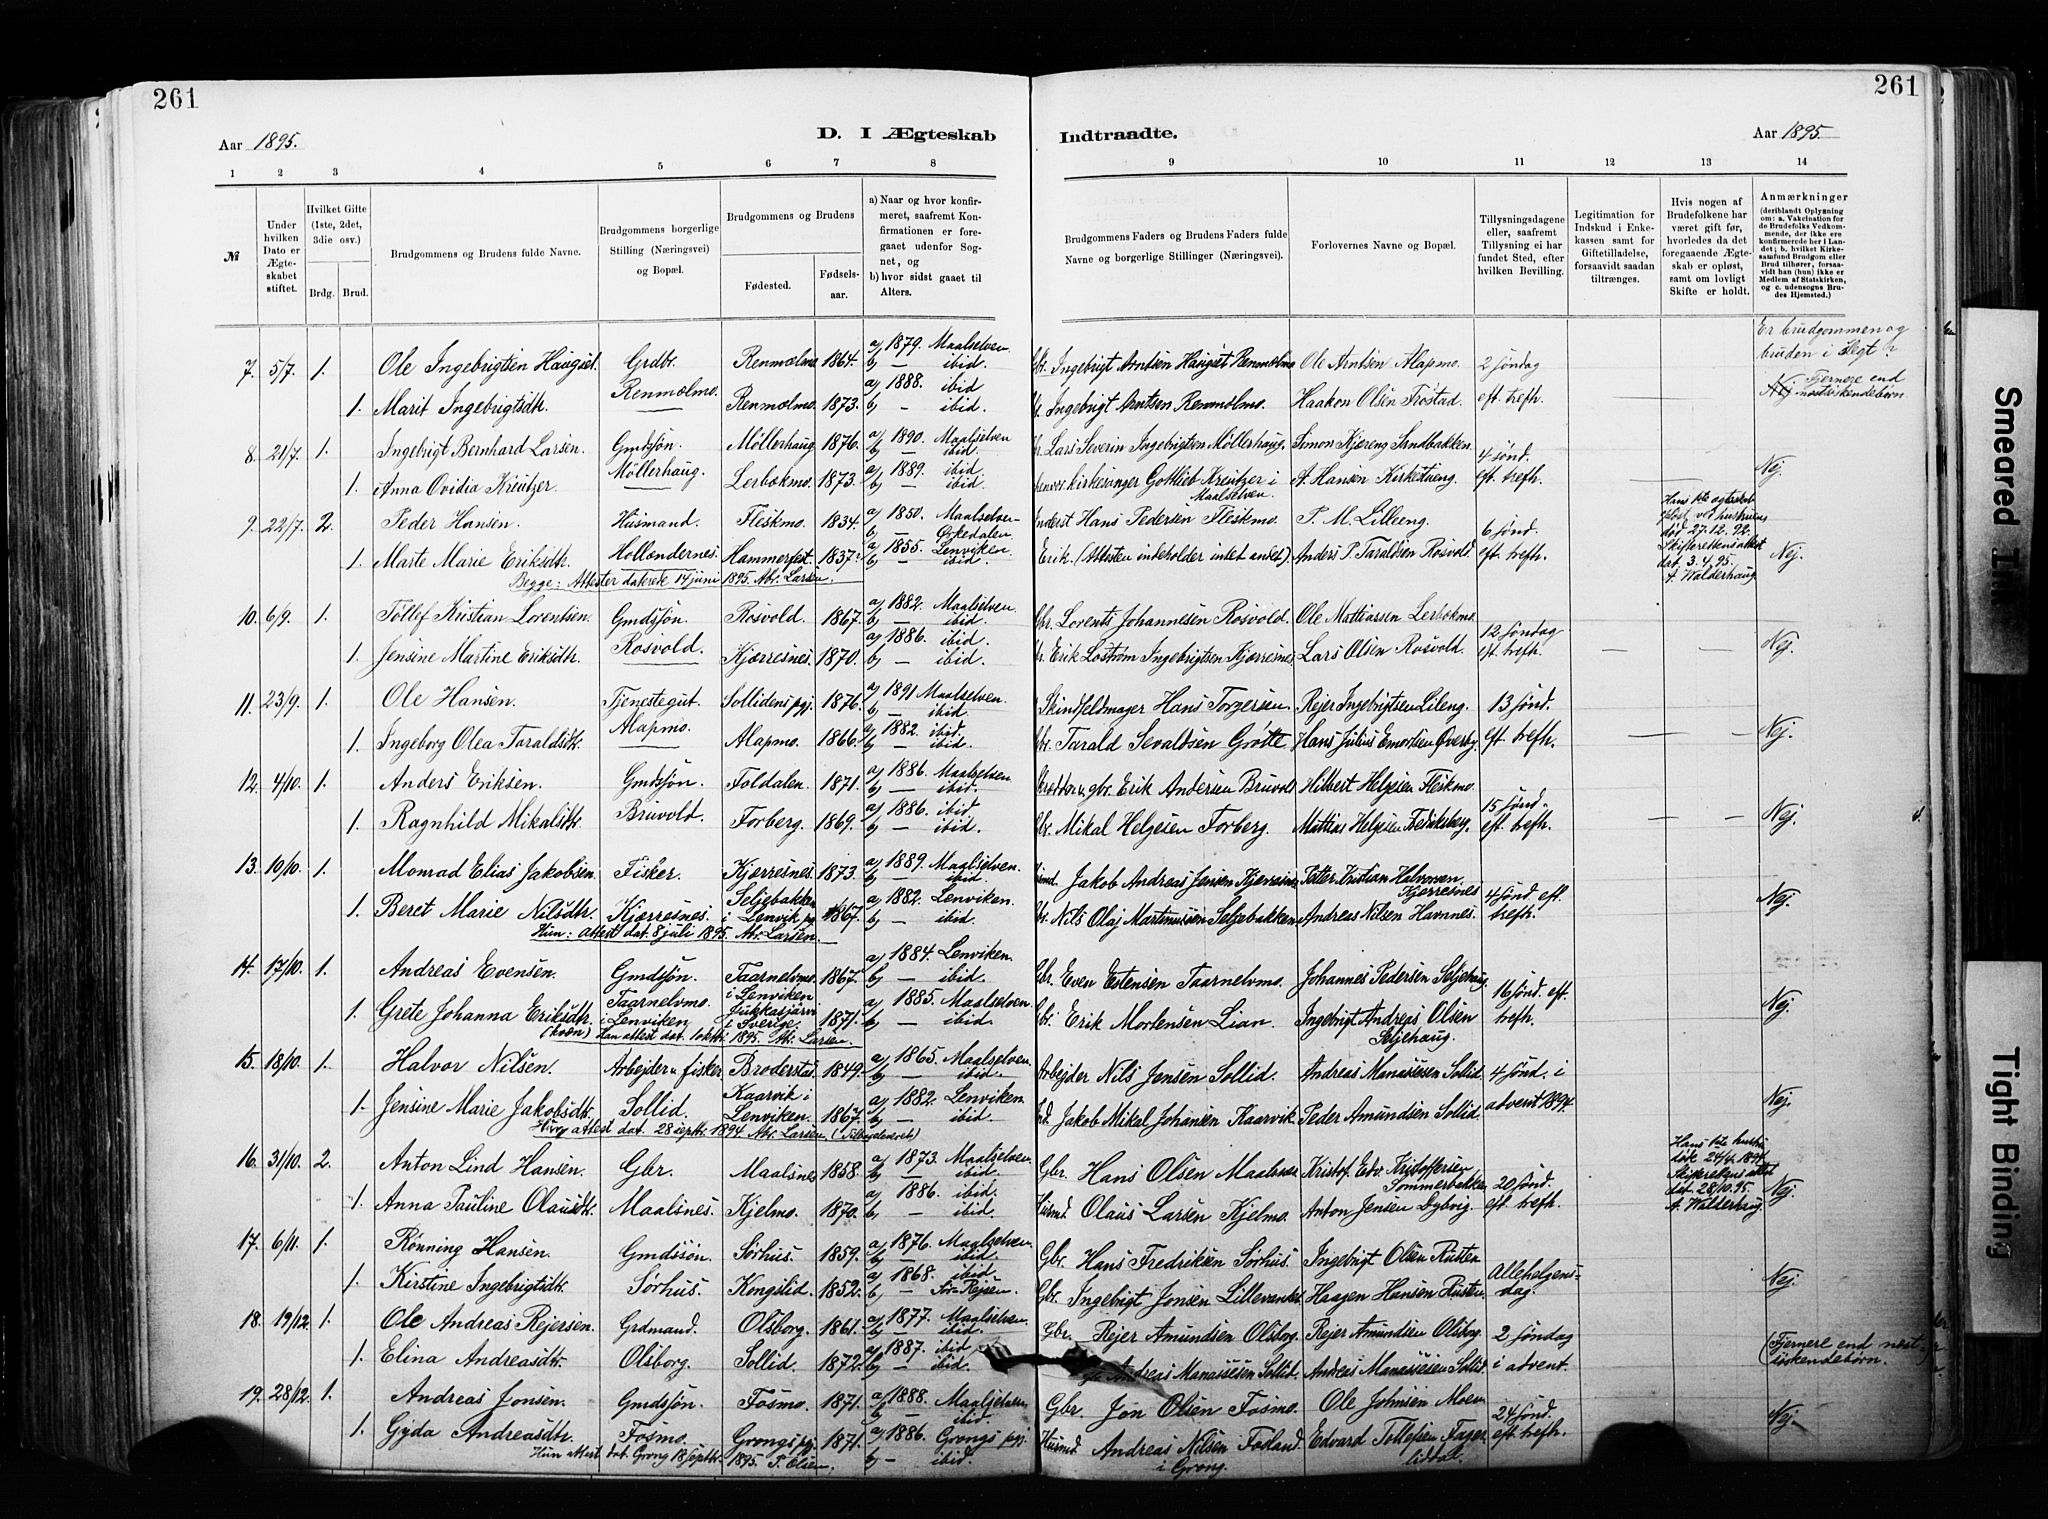 261
261
Aar 1895.
D. I Ægteskab
Indtraadte.
Aar 1895.
1 2 3 4 5 6 7 8 9 10 11 12 13 14
№
Under hvilken Dato er Ægteskabet stiftet.
Hvilket Gifte (1ste, 2det, 3die osv.)
Brdg. Brud.
Brudgommens og Brudens fulde Navne.
Brudgommens borgerlige Stilling (Næringsvei) og Bopæl.
Brudgommens og Brudens
Fødested.
Fødselsaar.
a) Naar og hvor konfirmeret, saafremt Konfirmationen er foregaaet udenfor Sognet, og
b) hvor sidst gaaet til Alters.
Brudgommens Faders og Brudens Faders fulde Navne og borgerlige Stillinger (Næringsvei).
Forlovernes Navne og Bopæl.
Tillysningsdagene eller, saafremt Tillysning ei har fundet Sted, efter hvilken Bevilling.
Legitimation for Indskud i Enkekassen samt for Giftetilladelse, forsaavidt saadan tiltrænges.
Hvis nogen af Brudefolkene har været gift før, hvorledes da det foregaaende Ægteskab er opløst, samt om lovligt Skifte er holdt.
Anmærkninger
(deriblandt Oplysning om: a. Vakcination for de Brudefolks Vedkommende, der ikke ere konfirmerede her i Landet; b. hvilket Kirkesamfund Brudgom eller Brud tilhører, forsaavidt han (hun) ikke er Medlem af Statskirken, og c. udensogns Brudes Hjemsted.)
Er brudgommen og bruden i slegt?
7. 5/7. 1. Ole Ingebrigtsen Haugset. Grdbr. Renmælmo 1864. a) 1879. Maalselven. b) — ibid. Gbr. Ingebrigt Arntsen Haugset Renmælmo Ole Arntsen Alapmo. 2 søndag
1. Marit Ingebrigtsdtr. Renmælmo. Renmælmo. 1873. a) 1888. ibid b) — ibid. Ingebrigt Arntsen Renmælmo. Haakon Olsen Frostad. eft. trefh. — — Nej Fjernere end næstsøskendebørn.
8. 21/7. 1. Ingebrigt Bernhard Larsen. Gmdssøn. Møllerhaug 1876. a) 1890. Maalselven b) — ibid. Lars Severin Ingebrigtsen Møllerhaug. Simon Kjæreng Sandbakken. 4 sønd.
1. Anna Ovidia Kreutzer. Møllerhaug. Lerbækmo. 1873. a) 1889. ibid. b) — ibid. kirkesanger Gottlieb Kreutzer i Maalselven. A. Hansen Kirkestueng. eft. trefh. Nej.
9. 22/7. 2. Peder Hansen. Husmand. Fleskmo. 1834. a) 1850. Maalselven b. — Ørkedalen Inderst Hans Pedersen Fleskmo. P. M. Lilleeng. 6 sønd. Hans 1ste ægteskab opløst ved hustruens død 27.12.92. Skifterettens attest dat. 3.4.95. A. Walderhaug
1. Marte Marie Eriksdtr. Hollendernes. Hammerfest. 1837. a) 1855. Lenviken. b) — ibid. Erik (Attesten indeholder intet andet) Anders P. Taraldsen Rosvold. eft. trefh. Nej.
Begge: Attester daterede 14 juni 1895. Ab. Larsen.
10. 6/9. 1. Tollef Kristian Lorentsen. Gmdssøn. Rosvold. 1867. a) 1882. Maalselven. b) — ibid. Gbr. Lorents Johannesen Rosvold. Ole Mattiassen Lerbækmo. 12 søndag
1. Jensine Martine Eriksdtr. Rosvold. Kjærresnes. 1870. a) 1886. ibid. b) — ibid. Erik Løstrøm Ingebrigtsen Kjærresnes Lars Olsen Rosvold. eft. trefh. — — Nej.
11. 23/9. 1. Ole Hansen. Tjenestegut. Sollidens pgj. 1876. a) 1891 Maalselven. b) — ibid. Skindfeldmager Hans Torgersen. Rejer Ingebrigtsen Lileng. 13 sønd.
1. Ingeborg Olea Taraldsdtr. Alapmo. Alapmo. 1866. a) 1882. ibid. b) — ibid. Gbr. Tarald Sevaldsen Grøtte. Hans Julius Emortsen Øverby. eft. trefh. — — Nej.
12. 4/10. 1. Anders Eriksen. Gmdssøn. Foldalen. 1871. a) 1886. Maalselven b) — ibid. gbr. Erik Andersen Bruvold Hilbert Helgesen Fleskmo. 15 sønd.
1. Ragnhild Mikalsdtr. Bruvold. Forberg. 1869. a) 1886. ibid b) — ibid. Gbr. Mikal Helgesen Forberg. Mattias Helgesen Fredriksberg. eft. trefh. — — Nej.
13. 10/10. 1. Monrad Elias Jakobsen. Fisker. Kjærresnes. 1873. a) 1889. Maalselven. b) — ibid. Jakob Andreas Jensen Kjærresnes Petter Kristian Halvorsen Kjærresnes 4 sønd eft.
1. Beret Marie Nilsdtr. Kjærresnes. Seljebakken i Lenvik pgj 1867. a) 1882. Lenviken. b) — ibid. Nils Olaj Martinussen Seljebakken Andreas Nilsen Havnnes. trefh. Nej.
Hun: attest dat. 8 juli 1895. Ab. Larsen.
14. 17/10. 1. Andreas Evensen. Gmdssøn. Taarnelvmo. i Lenviken 1867. a) 1884. Lenviken. b) — ibid. Gbr. Even Estensen Taarnelvmo. Johannes Pedersen Seljehaug. 16 sønd. eft.
1. Grete Johanna Eriksdtr. (kvæn) Taarnelvmo. i Lenviken Jukkasjærvi i Sverige. 1871. a) 1885. Maalselven. b) — ibid. Gbr. Erik Mortensen Lian. Ingebrigt Andreas Olsen Seljehaug. trefh. Nej.
Han attest dat. 1 oktbr. 1895. Ab. Larsen.
15. 18/10. 1. Halvor Nilsen. Arbejder u. fisker Broderstad. 1849. a) 1865. Maalselven. b) — ibid. Arbejder Nils Jensen Sollid. Andreas Manassesen Sollid. 4 sønd. i
1. Jensine Marie Jakobsdtr. Sollid. Kaarvik i Lenviken. 1867. a) 1882. Lenviken. b) — ibid. Jakob Mikal Johansen Kaarvik. Peder Amundsen Sollid. advent 1894. Nej.
Hun attest dat. 28 septbr. 1894 Ab. Larsen. (Tilbageleveret)
16. 31/10. 2. Anton Lind Hansen. Gbr. Maalsnes 1858. a) 1873. Maalselven. b) — ibid. Gbr. Hans Olsen Maalsnes Kristof. Edv. Kristoffersen Sommerbakken 20 sønd. Hans 1ste hustru døde 24/4 1894. Skifterettens attest dat. 28/10.95. A. Walderhaug.
1. Anna Pauline Olausdtr. Maalsnes. Kjelmo. 1870. a) 1886. ibid. b) — ibid. Husmd. Olaus Larsen Kjelmo. Anton Jensen Dybvig. eft. trefh. Nej.
17. 6/11. 1. Rønning Hansen. Gmdssøn. Sørhus. 1859. a) 1876. Maalselven. b) — ibid. Gbr. Hans Fredriksen Sørhus. Ingebrigt Olsen Rusten. Allehelgens-
1. Kirstine Ingebrigtsdtr. Sørhus. Kongslid. 1852. a) 1868. ibid b) — Sør-Rejsen. Gbr. Ingebrigt Jonsen Lillevandet. Haagen Hansen Rusten. dag. Nej.
18. 19/12. 1. Ole Andreas Rejersen. Grdmand. Olsborg. 1861. a) 1877. Maalselven. b) — ibid. Gbr. Rejer Amundsen Olsborg. Rejer Amundsen Olsborg. 2 søndag
1. Elina Andreasdtr. Olsborg. Sollid. 1872. a) 1887. ibid b) — ibid. Andreas Manassesen Sollid. Andreas Manassesen Sollid. i advent. (Fjernere end næstsøskendebørn.
19. 28/12. 1. Andreas Jonsen. Gmdssøn. Fosmo. 1871. a) 1888. Maalselven. b) — ibid. Gbr. Jon Olsen Fosmo. Ole Johnsen Moen 24 sønd.
1. Gjyda Andreasdtr. Fosmo. Grongs pgj. 1871. a) 1886. Grongs pgj. b) — ibid. Husmd. Andreas Nilsen Fosland. i Grong. Edvard Tollefsen Fagerlidal. eft. trefh. Nej.
Hun attest dat. Grong 18 septbr. 1895. P. Olsen.
Smeared Ink
Tight Binding